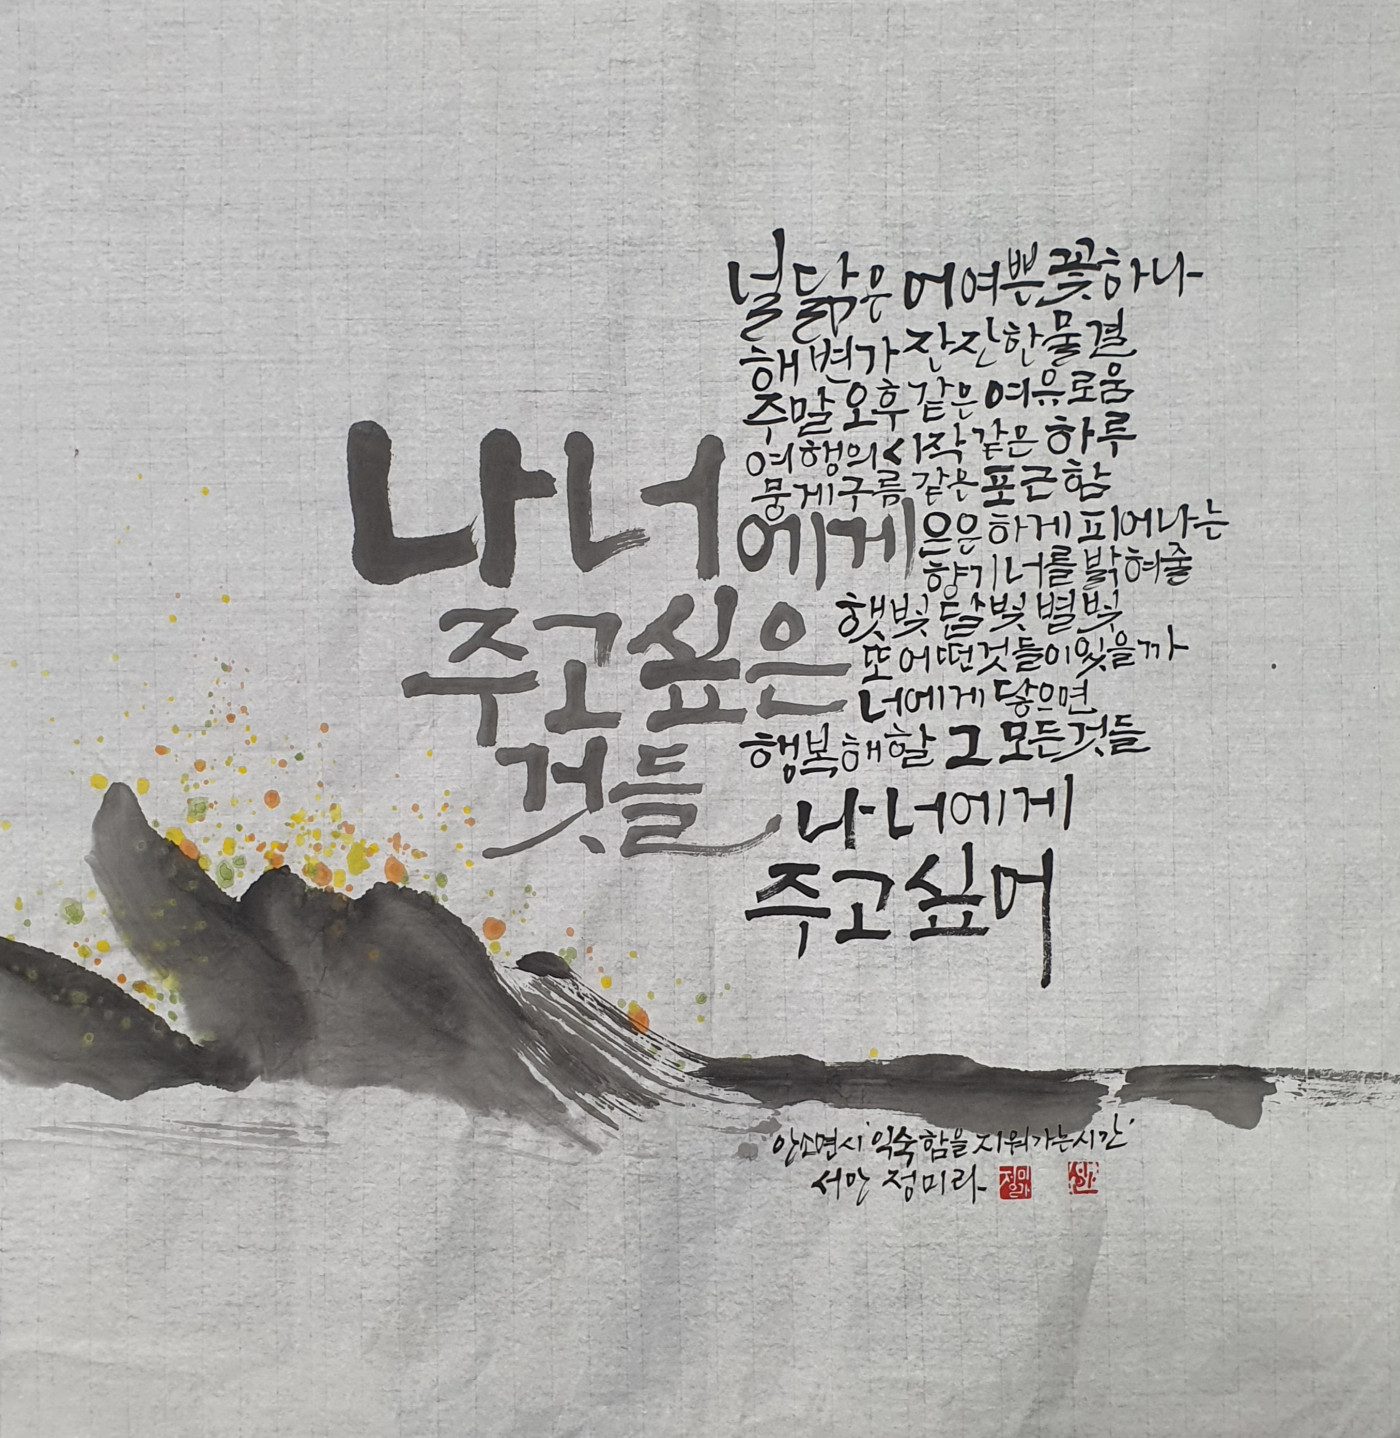 나 너에게
주고 싶은
것들
널 닮은 어여쁜 꽃 하나
해변가 잔잔한 물결
주말 오후 같은 여유로움
여행의 시작 같은 하루
뭉게구름 같은 포근함
은은하게 피어나는
향기 너를 밝혀줄
햇빛 달빛 별빛
또 어떤 것들이 있을까
너에게 닿으면
행복해할 그 모든 것들
나 너에게
주고 싶어
안소연 시 '익숙함을 지워가는 시간'
서안 정미라